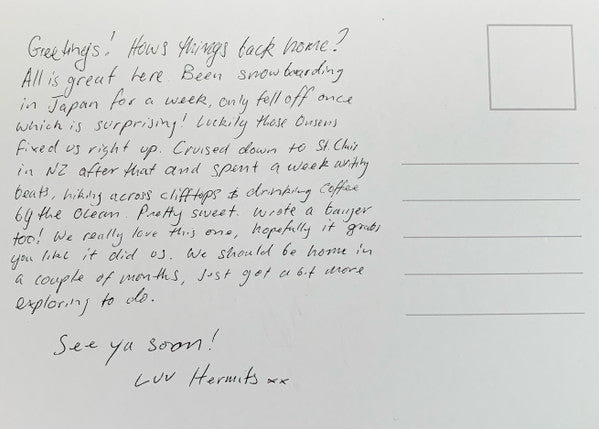 Greetings! Hows things back home?
All is great here. Been snowboarding
in Japan for a week, only fell off once
which is surprising! Luckily those Onsens
fixed us right up. Cruised down to St. Clair
in NZ after that and spent a week writing
beats, hiking across clifftops & drinking coffee
by the ocean. Pretty sweet. Wrote a banger
too! We really love this one, hopefully it grabs
you like it did us. We should be home in
a couple of months, Just got a bit more
exploring to do.
See ya soon!
Luv Hermits xx